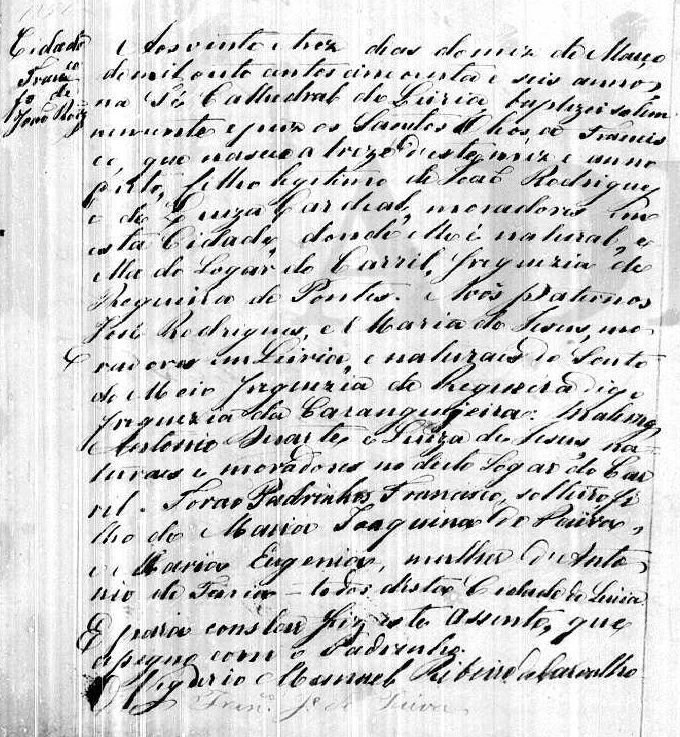 Cidade
Franco
fo de
João Roiz
Aos vinte e trez dias do mez de Março
de mil oito centos cincoenta e seis annos,
na Sé Cathedral de Leiria baptizei solem
nemente e puz os Santos Olhos a Francis
co, que nasceu a treze d'este mez e anno
filho legitimo de João Rodrigues
e de Luiza Cardeal, moradores em
esta Cidade, donde elle é natural, e
ella do Logar do Carril, freguezia de
Regueira de Pontes. Avós paternos
José Rodrigues, e Maria de Jesus, mo-
radores em Leiria, e naturaes do Souto
do Meio freguezia de Regueira digo
freguezia da Caranguejeira: Maternos,
Antonio Duarte e Luiza de Jesus, na-
turaes e moradores no dicto Logar do Car
ril. Forão Padrinhos Francisco, solteiro fi
lho de Maria Joaquina de Paiva,
e Maria Eugenia, mulher d'Anto
nio de Faria - todos desta Cidade de Leiria
E para constar fiz este Assento, que
assigno com o Padrinho.
O Vigario Manoel Ribeiro de Carvalho
Franco Je de Paiva